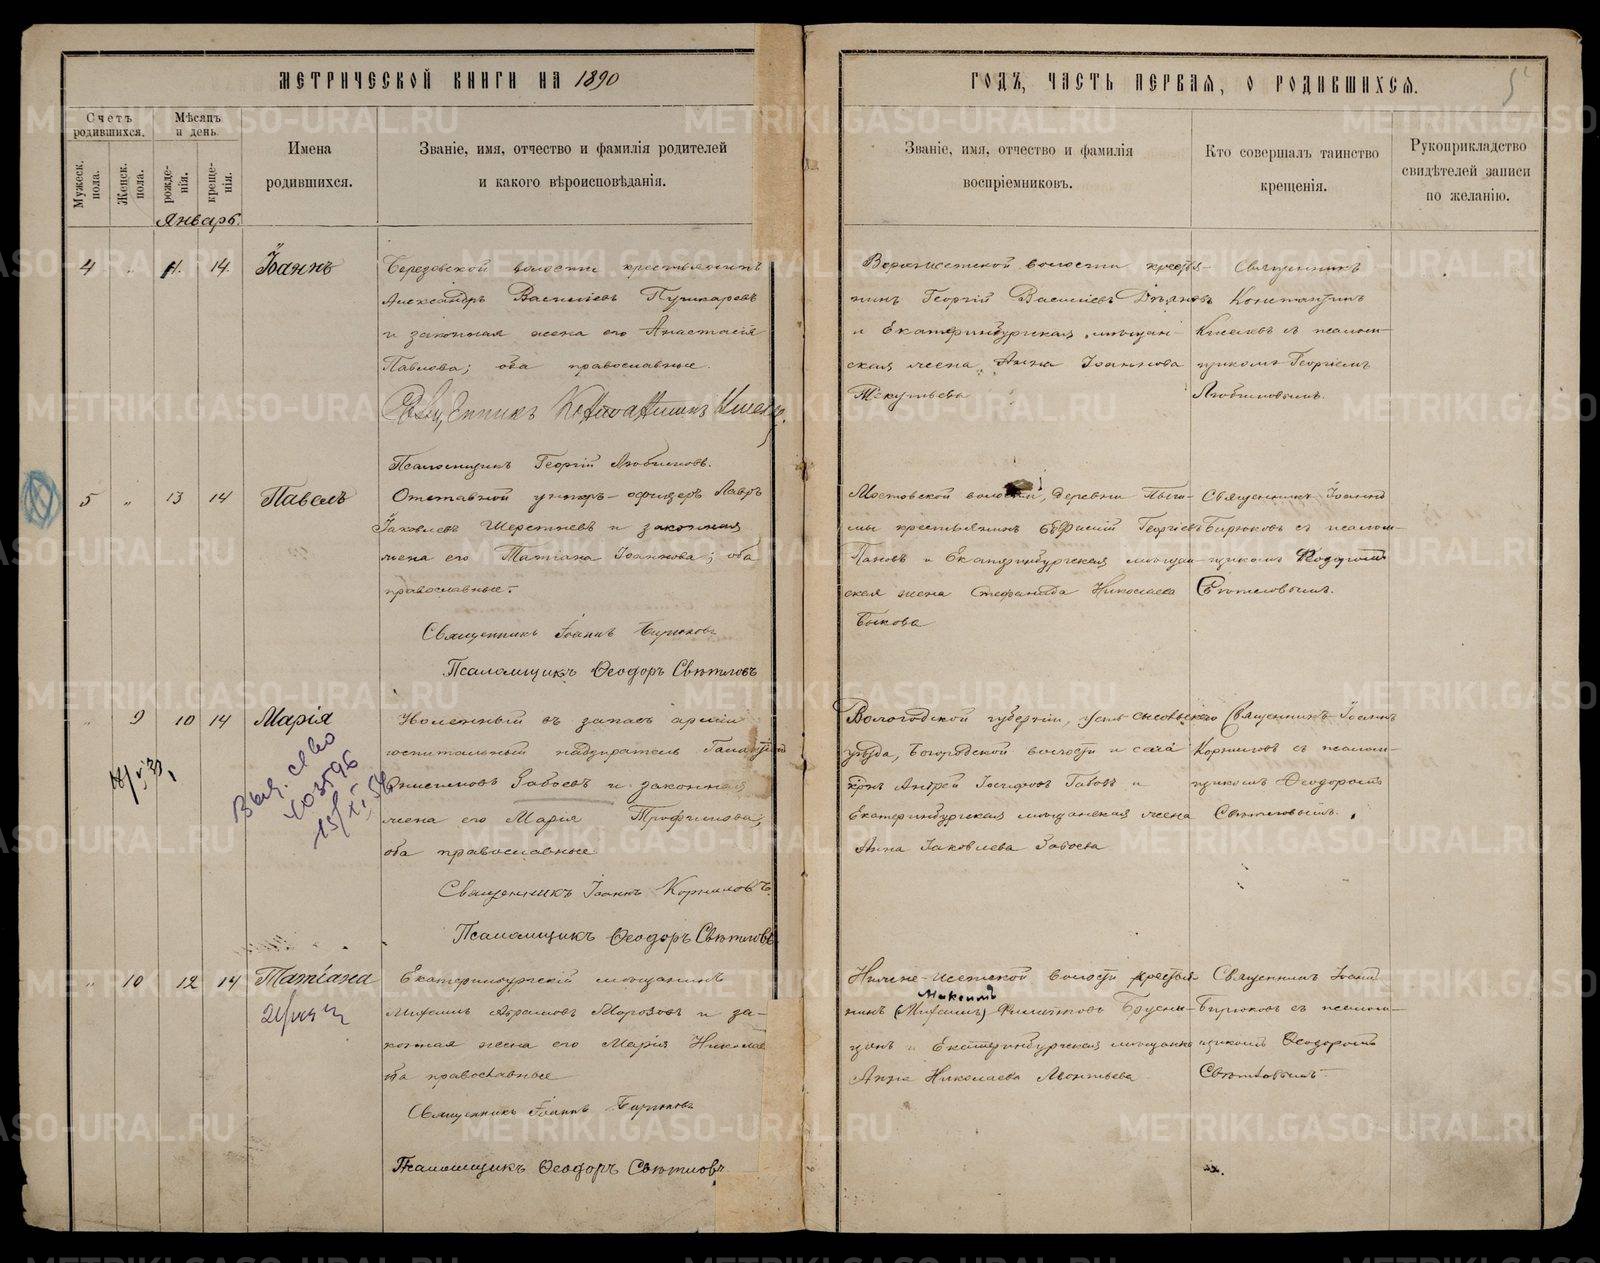 МЕТРИЧЕСКОЙ КНИГИ НА 1890
ГОДЪ, ЧАСТЬ ПЕРВАЯ, О РОДИВШИХСЯ.
Счетъ родившихся.
Мужеск. пола.
Женск. пола.
Мѣсяцъ и день.
рожде-нія.
креще-нія.
Имена родившихся.
Званіе, имя, отчество и фамилія родителей
и какого вѣроисповѣданія.
Званіе, имя, отчество и фамилія
воспріемниковъ.
Кто совершалъ таинство
крещенія.
Рукоприкладство
свидѣтелей записи
по желанію.
Январь.
4 " 11. 14. Іоаннъ
Березовской волости крестьянинъ
Александръ Василіевъ Пушкаревъ
и законная жена его Анастасія
Павлова; оба православные.
Священникъ Константинъ
Псаломщикъ Георгій Любимовъ.
волости крестья-
нинъ Георгій Василіевъ
и Екатеринбургская мѣщан-
ская жена Анна Іоаннова
Текутьева
Священникъ
Константинъ
съ псалом-
щикомъ Георгіемъ
Любимовымъ.
5 " 13 14 Павелъ
Отставной унтеръ-офицеръ Лавръ
Іаковлевъ Шерстневъ и законная
жена его Татіана Іоаннова; оба
православные.
Священникъ Іоаннъ Бирюковъ
Псаломщикъ Ѳеодоръ Свѣтловъ
Мостовской волости, деревни
мы крестьянинъ Георгіевъ
Пановъ и Екатеринбургская мѣщан-
ская жена Стефанида Николаева
Быкова
Священникъ Іоаннъ
Бирюковъ съ псалом-
щикомъ Ѳеодоромъ
Свѣтловымъ.
" 9 10 14 Марія
Выд. св-во
403596
15/XI-54
Уволенный въ запасъ арміи
госпитальный надзиратель
Онисимовъ Габовъ и законная
жена его Марія Трофимова,
оба православные.
Священникъ Іоаннъ Корниловъ
Псаломщикъ Ѳеодоръ Свѣтловъ
Вологодской губерніи, Усть-сысольскаго
уѣзда, Богородской волости и села
Андрей Іосифовъ Габовъ и
Екатеринбургская мѣщанская жена
Анна Іаковлева
Священникъ Іоаннъ
Корниловъ съ псалом-
щикомъ Ѳеодоромъ
Свѣтловымъ.
" 10 12 14 Татіана
Екатеринбургскій мѣщанинъ
Михаилъ Абрамовъ Морозовъ и за-
конная жена его Марія Николае-
ва православные
Священникъ Іоаннъ Бирюковъ
Псаломщикъ Ѳеодоръ Свѣтловъ
Нижне-Исетской волости крестья-
Максимъ
нинъ (Михаилъ) Филипповъ Брусни-
цынъ и Екатеринбургская мѣщанка
Анна Николаева Леонтьева
Священникъ Іоаннъ
Бирюковъ съ псалом-
щикомъ Ѳеодоромъ
Свѣтловымъ.
METRIKI.GASO-URAL.RU